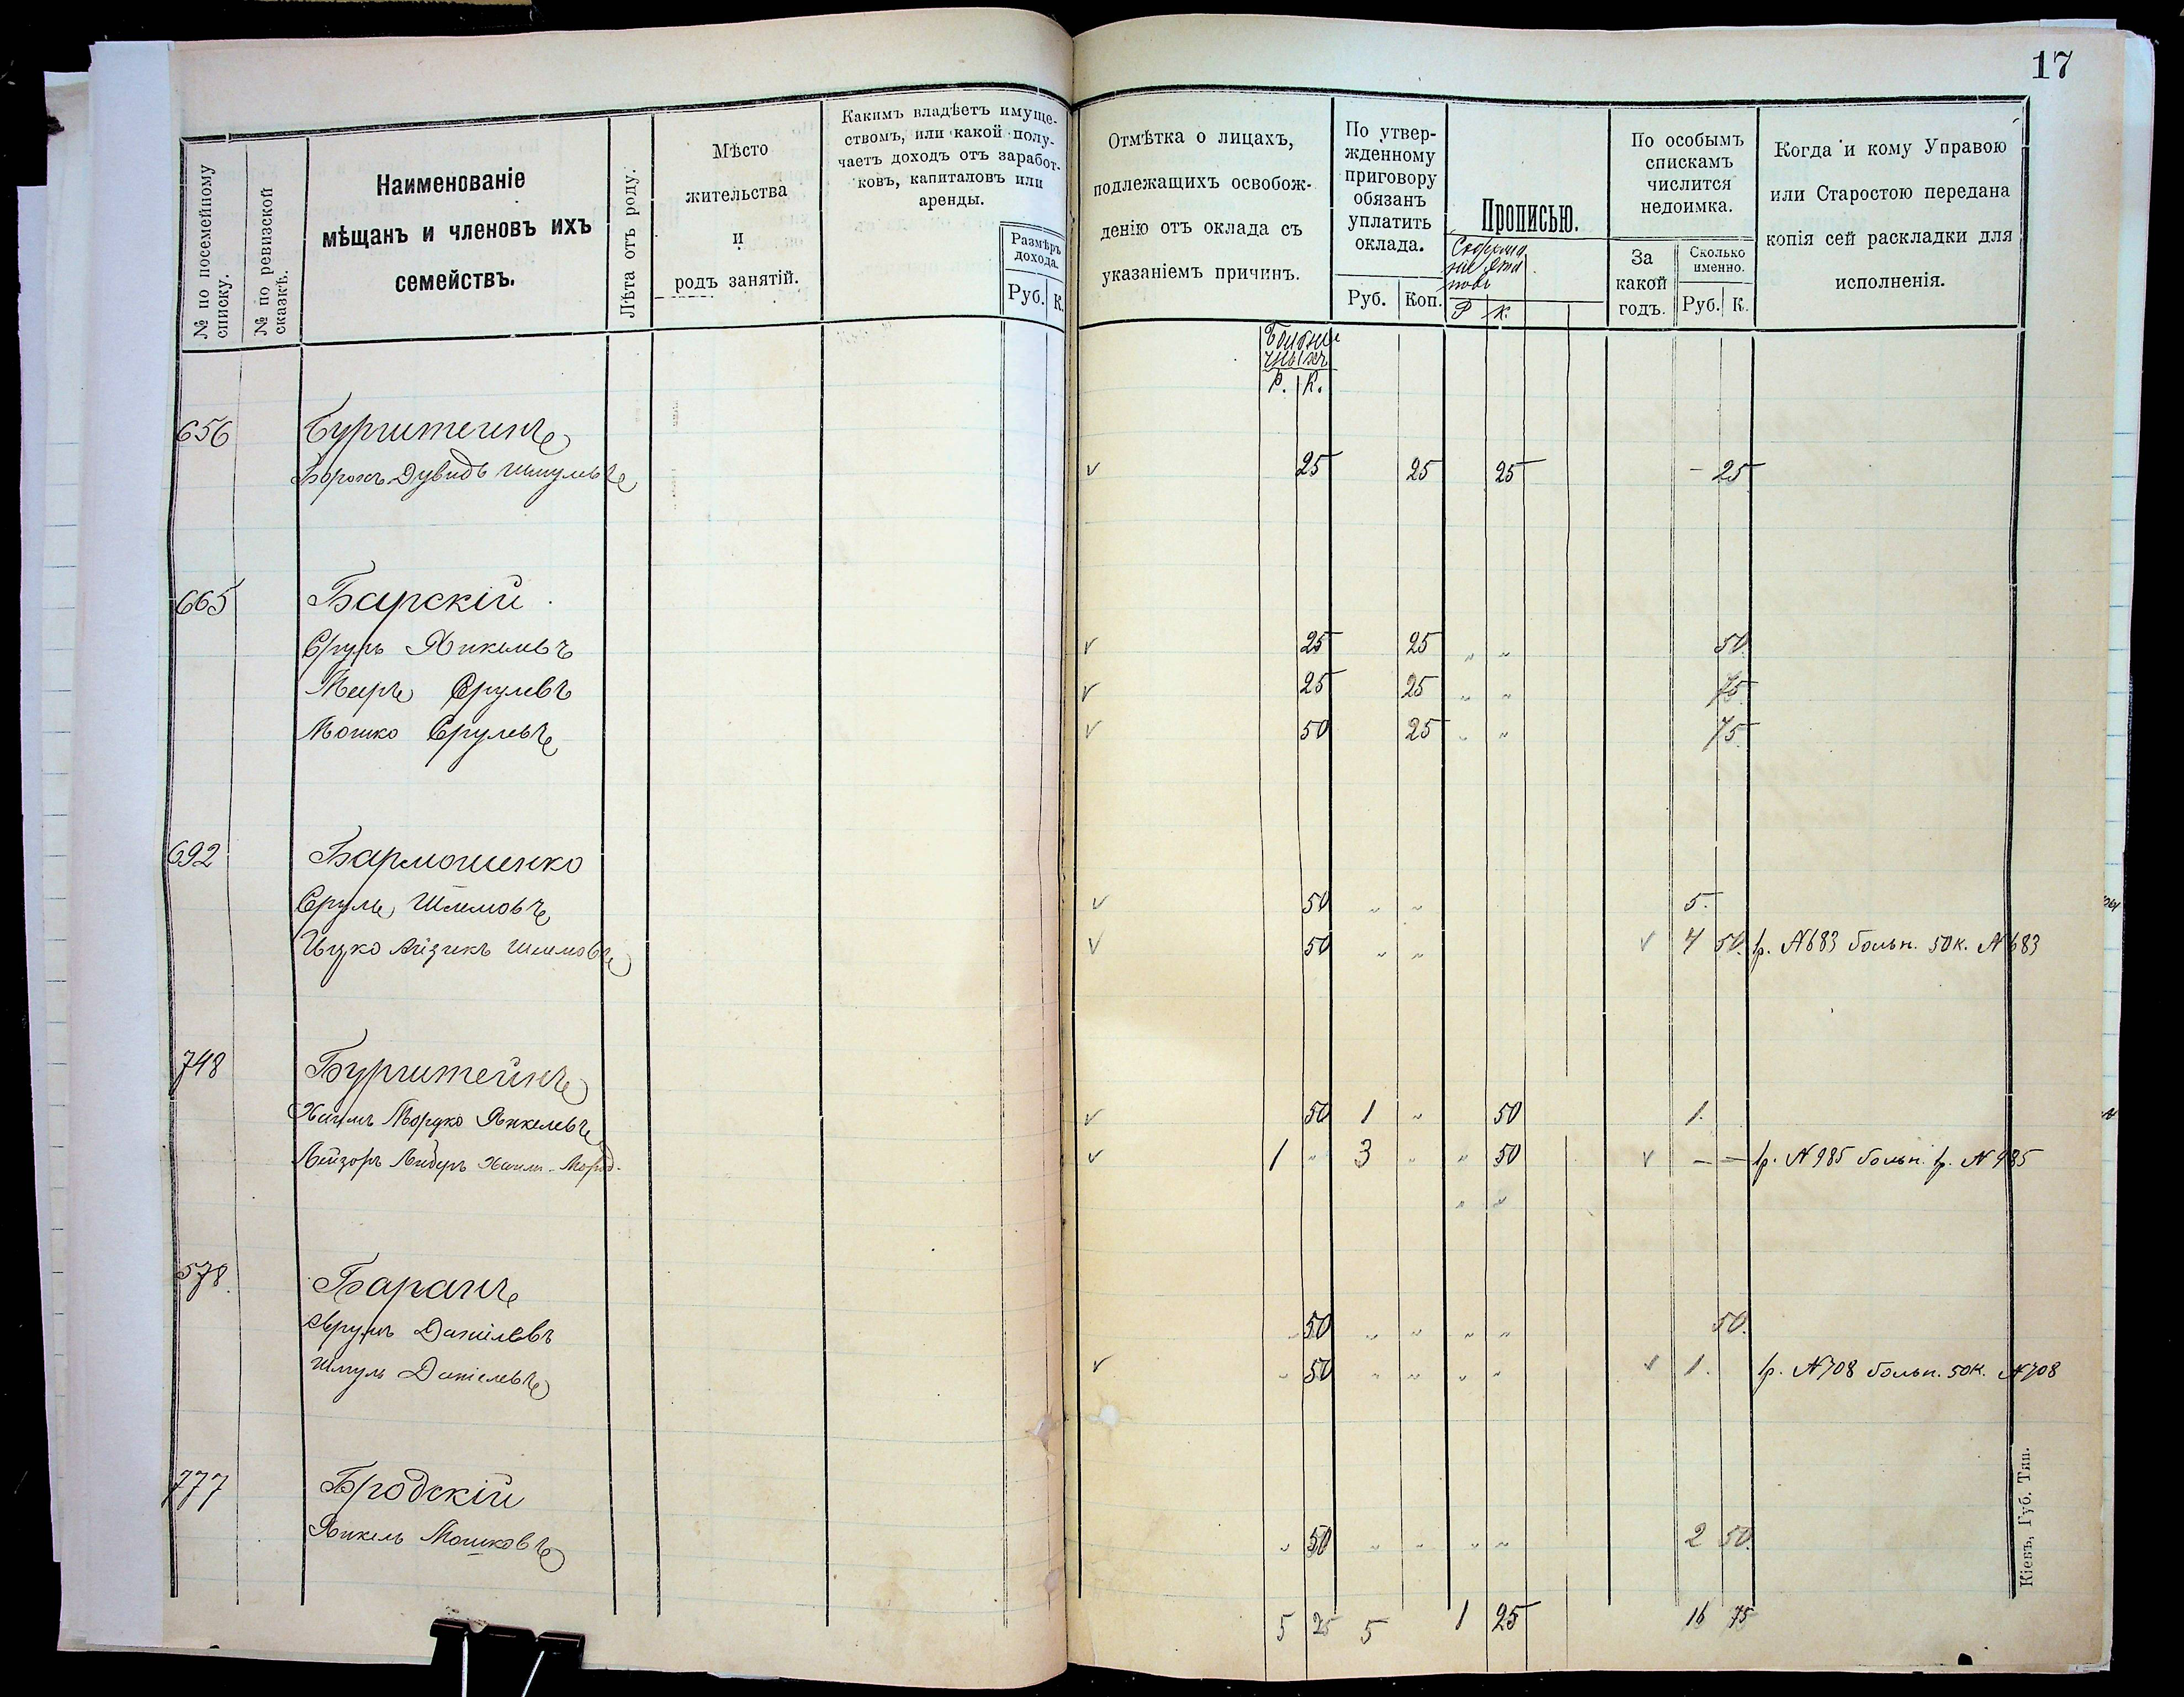 17
№ по посемейному списку.
№ по ревизской сказкѣ.
Наименованіе
мѣщанъ и членовъ ихъ
семействъ.
Лѣта отъ роду.
Мѣсто
жительства
и
родъ занятій.
Какимъ владѣетъ имуще-
ствомъ, или какой полу-
чаетъ доходъ отъ заработ-
ковъ, капиталовъ или
аренды.
Размѣръ
дохода.
Руб. К.
Отмѣтка о лицахъ,
подлежащихъ освобож-
денію отъ оклада съ
указаніемъ причинъ.
По утвер-
жденному
приговору
обязанъ
уплатить
оклада.
Руб. Коп.
Прописью.
Р К.
По особымъ
спискамъ
числится
недоимка.
За
какой
годъ.
Сколько
именно.
Руб. К.
Когда и кому Управою
или Старостою передана
копія сей раскладки для
исполненія.
Больни
чныхъ
Р. К.
656 Бурштейнъ
Борохъ Дувидъ Шмулевъ 25 25 25 - 25
665 Барскій
Сруль Янкелевъ 25 25 „ „ 50.
Мееръ Срулевъ 25 25 „ „ 75.
Мошко Срулевъ 50 25 „ „ 75.
692 Бармошенко
Сруль Шлемовъ 50 „ „ 5.
Ицко Айзикъ Шлемовъ 50 „ „ 4 50. 1р. №683 больн. 50к. №683
748 Бурштейнъ
Хаимъ Мордко Янкелевъ 50 1 „ 50 1.
Лейзоръ Либеръ Хаим-Морд. 1 „ 3 „ „ 50 — — 1р. №985 больн. 1р. №985
„ „
578. Баранъ
Аврумъ Даніелевъ 50 „ „ „ „ 50.
Шмуль Даніелевъ „ 50 „ „ „ „ 1. 1р. №708 больн. 50к. №708
777 Бродскій
Янкель Мошковъ „ 50 „ „ „ „ 2 50.
5 25 5 1 25 16 75
Кіевъ, Губ. Тип.